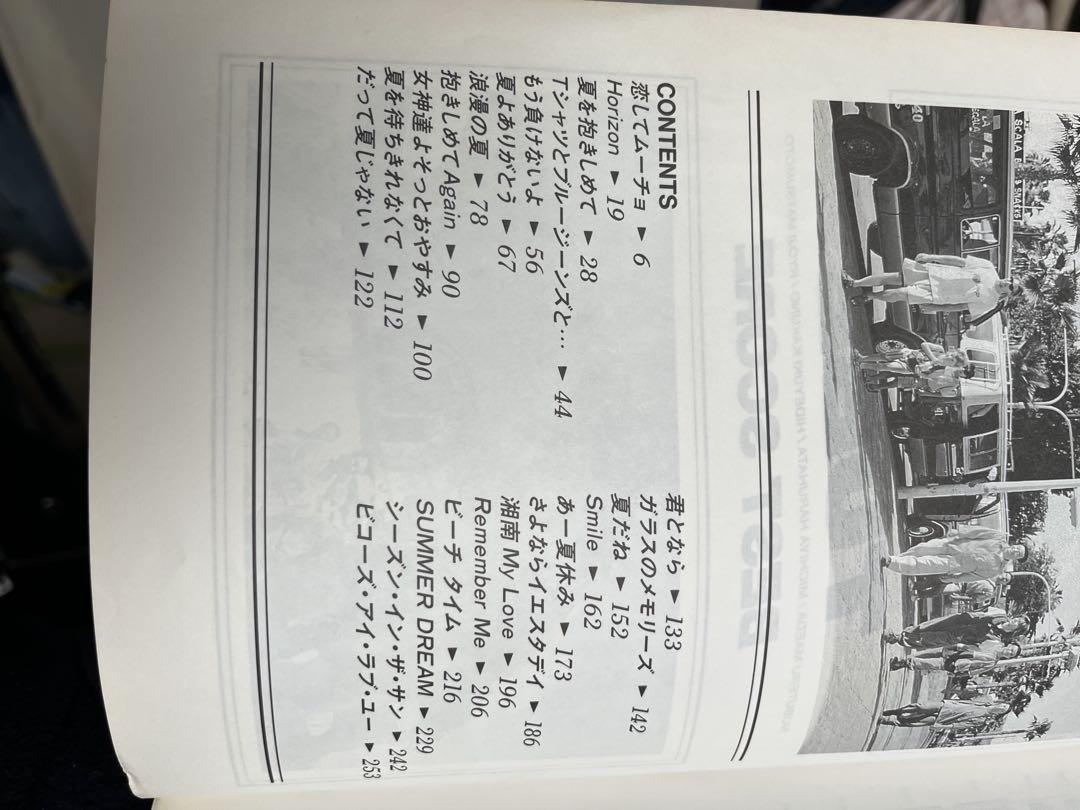 CONTENTS
恋してムーチョ ► 6
Horizon ► 19
夏を抱きしめて ► 28
Tシャツとブルージーンズと… ► 44
もう負けないよ ► 56
夏よありがとう ► 67
浪漫の夏 ► 78
抱きしめてAgain ► 90
女神達よそっとおやすみ ► 100
夏を待ちきれなくて ► 112
だって夏じゃない ► 122
君となら ► 133
ガラスのメモリーズ ► 142
夏だね ► 152
Smile ► 162
あー夏休み ► 173
さよならイエスタデイ ► 186
湘南 My Love ► 196
Remember Me ► 206
ビーチ タイム ► 216
SUMMER DREAM ► 229
シーズン・イン・ザ・サン ► 242
ビコーズ・アイ・ラブ・ユー ► 253